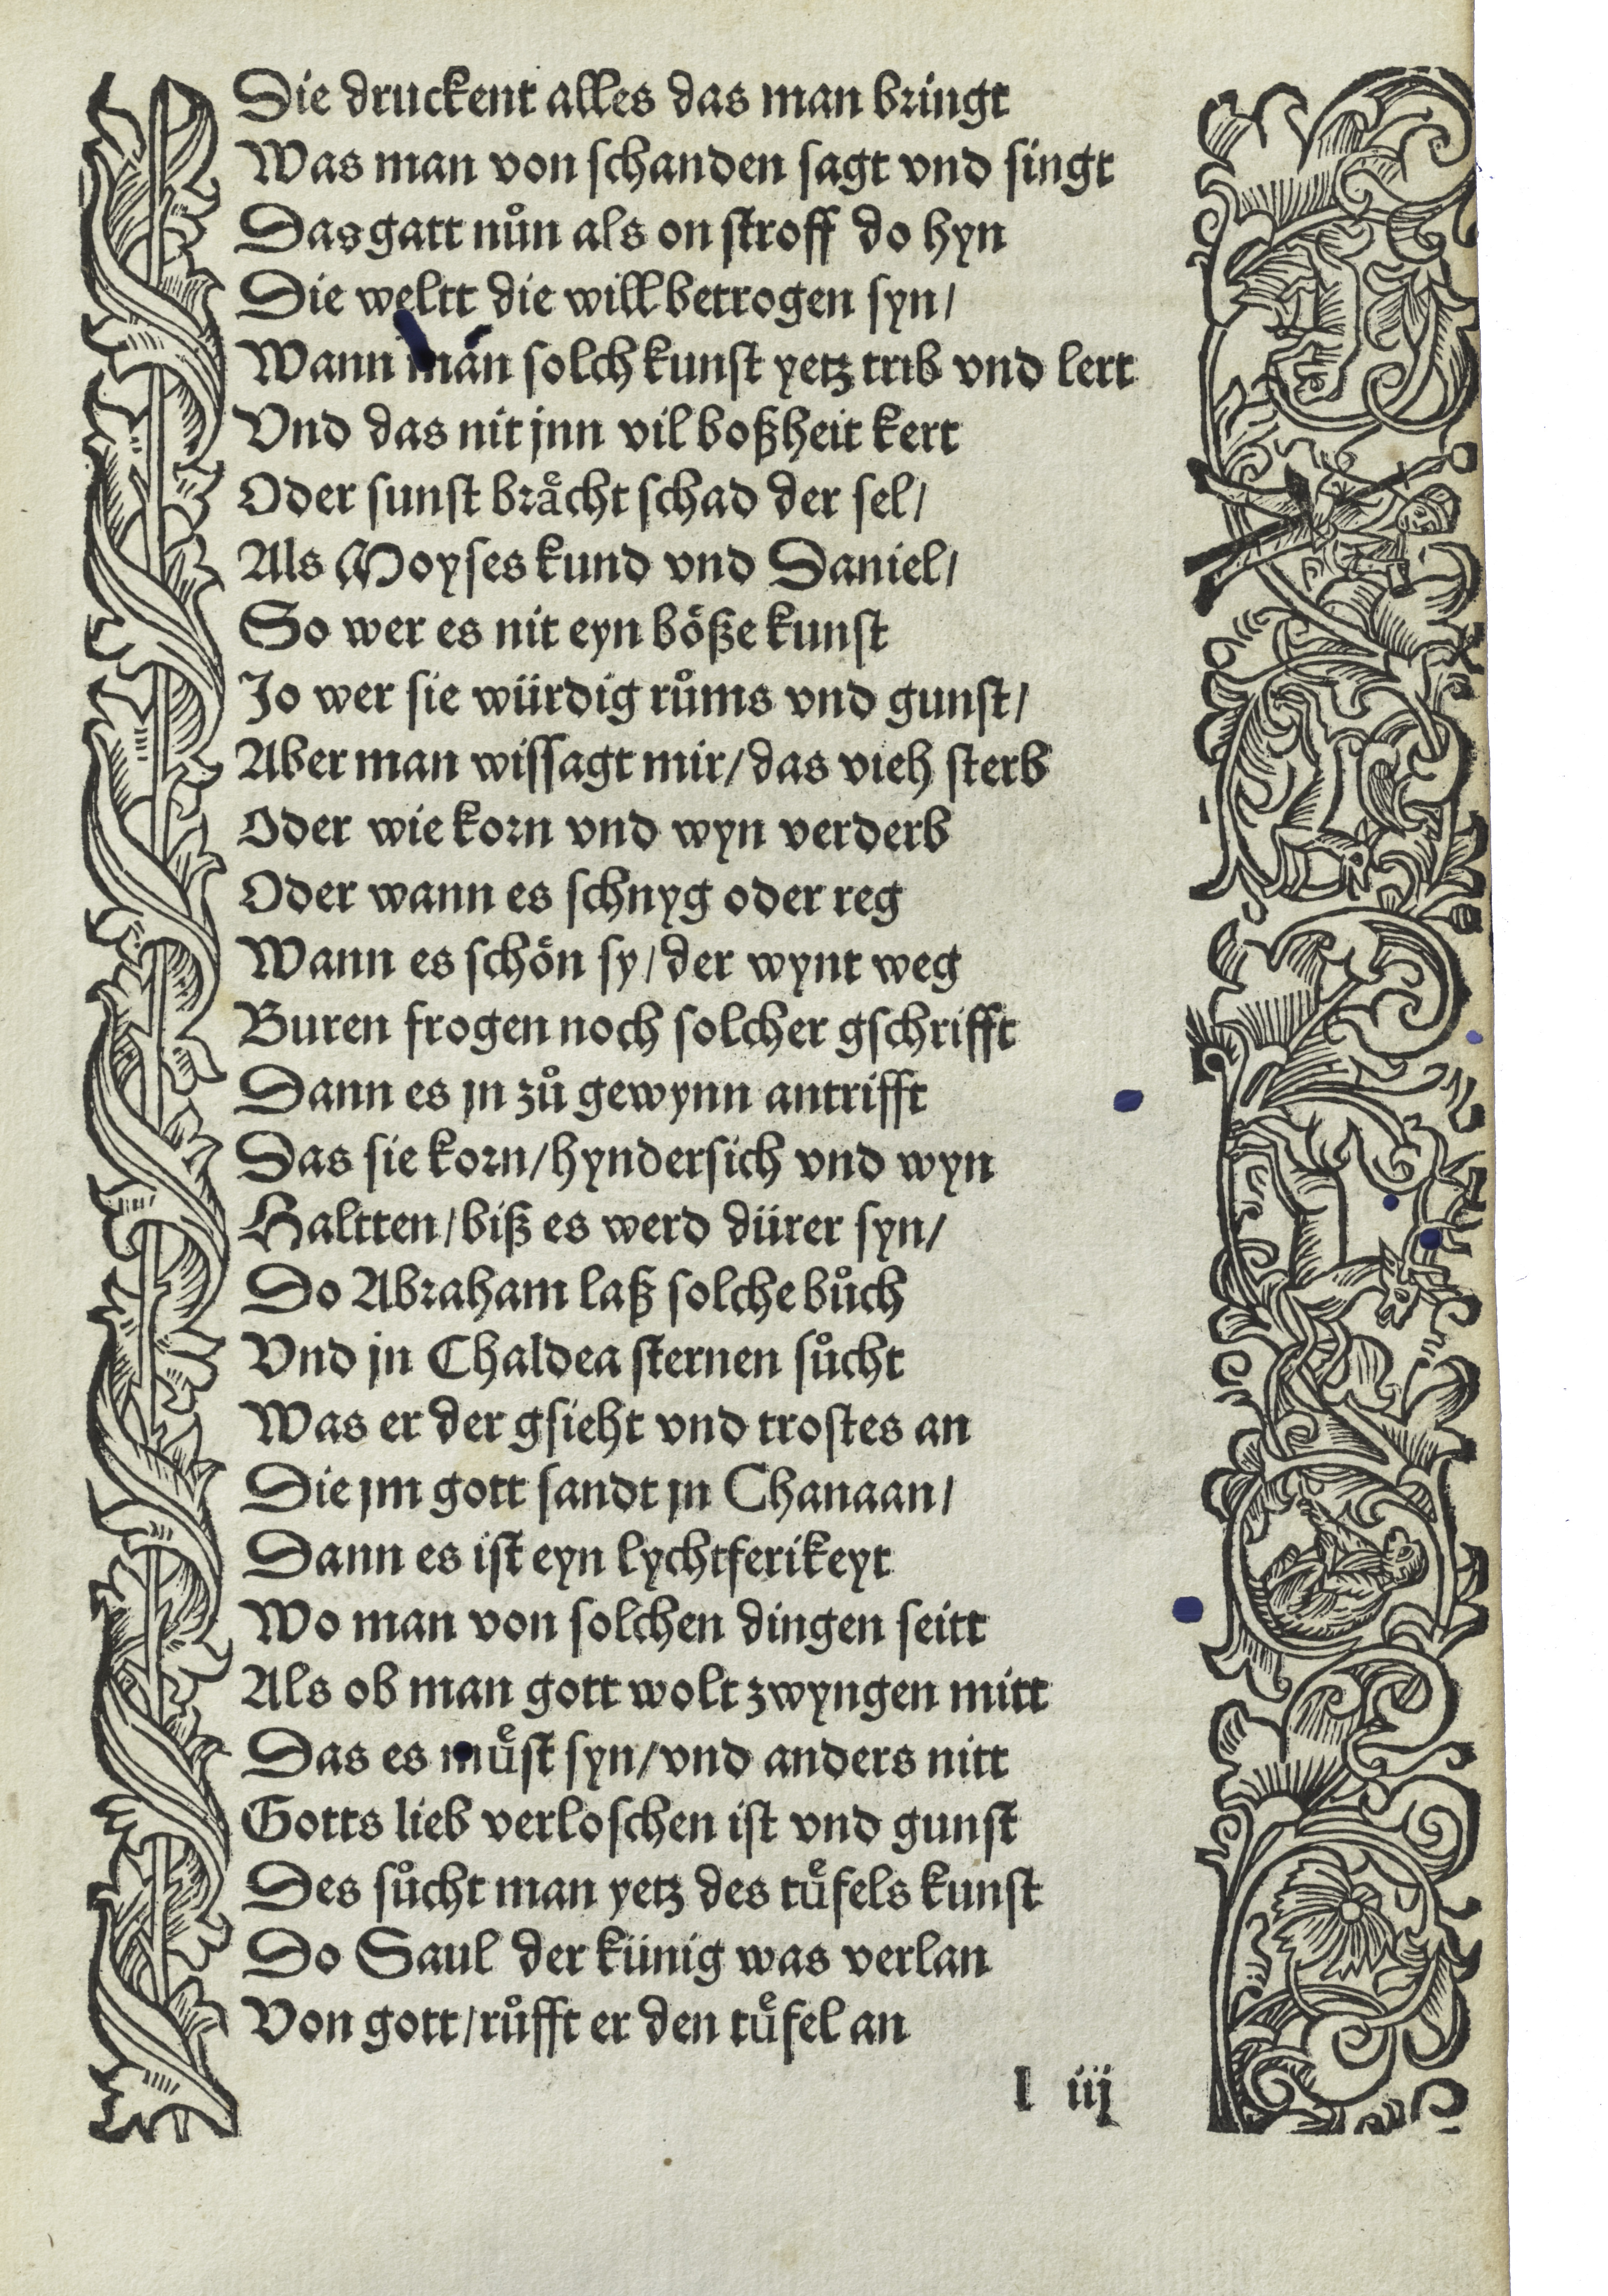 Die druckent alles das man bringt
Was man von schanden sagt vnd singt
Das gatt nůn als on stroff do hyn
Die weltt die will betrogen syn/
Wann man solch kunst yetz trib vnd lert
Vnd das nit jnn vil boßheit kert
Oder sunst braͤcht schad der sel/
Als Moyses kund vnd Daniel/
So wer es nit eyn boͤße kunst
Jo wer sie würdig růms vnd gunst/
Aber man wissagt mir/das vieh sterb
Oder wie korn vnd wyn verderb
Oder wann es schnyg oder reg
Wann es schoͤn sy/der wynt weg
Buren frogen noch solcher gschrifft
Dann es jn zů gewynn antrifft
Das sie korn/hyndersich vnd wyn
Haltten/biß es werd dürer syn/
Do Abraham laß solche bůch
Vnd jn Chaldea sternen sůcht
Was er der gsieht vnd trostes an
Die jm gott sandt jn Chanaan/
Dann es ist eyn lychtferikeyt
Wo man von solchen dingen seitt
Als ob man gott wolt zwyngen mitt
Das es muͤst syn/vnd anders nitt
Gotts lieb verloschen ist vnd gunst
Des sůcht man yetz des tuͤfels kunst
Do Saul der künig was verlan
Von gott/růfft er den tuͤfel an
l iij